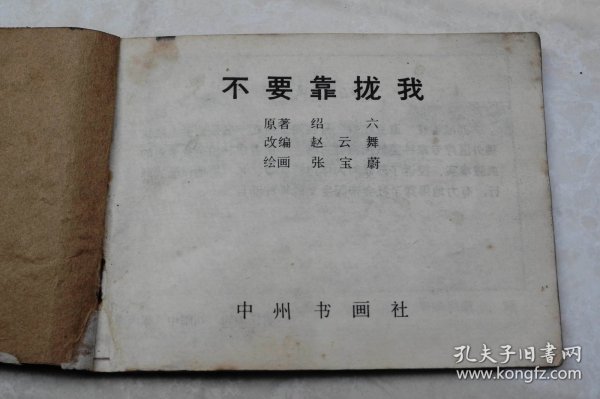 不要靠拢我
原著 绍六
改编 赵云舞
绘画 张宝蔚
中州书画社
孔夫子旧书网
www.kongfz.com